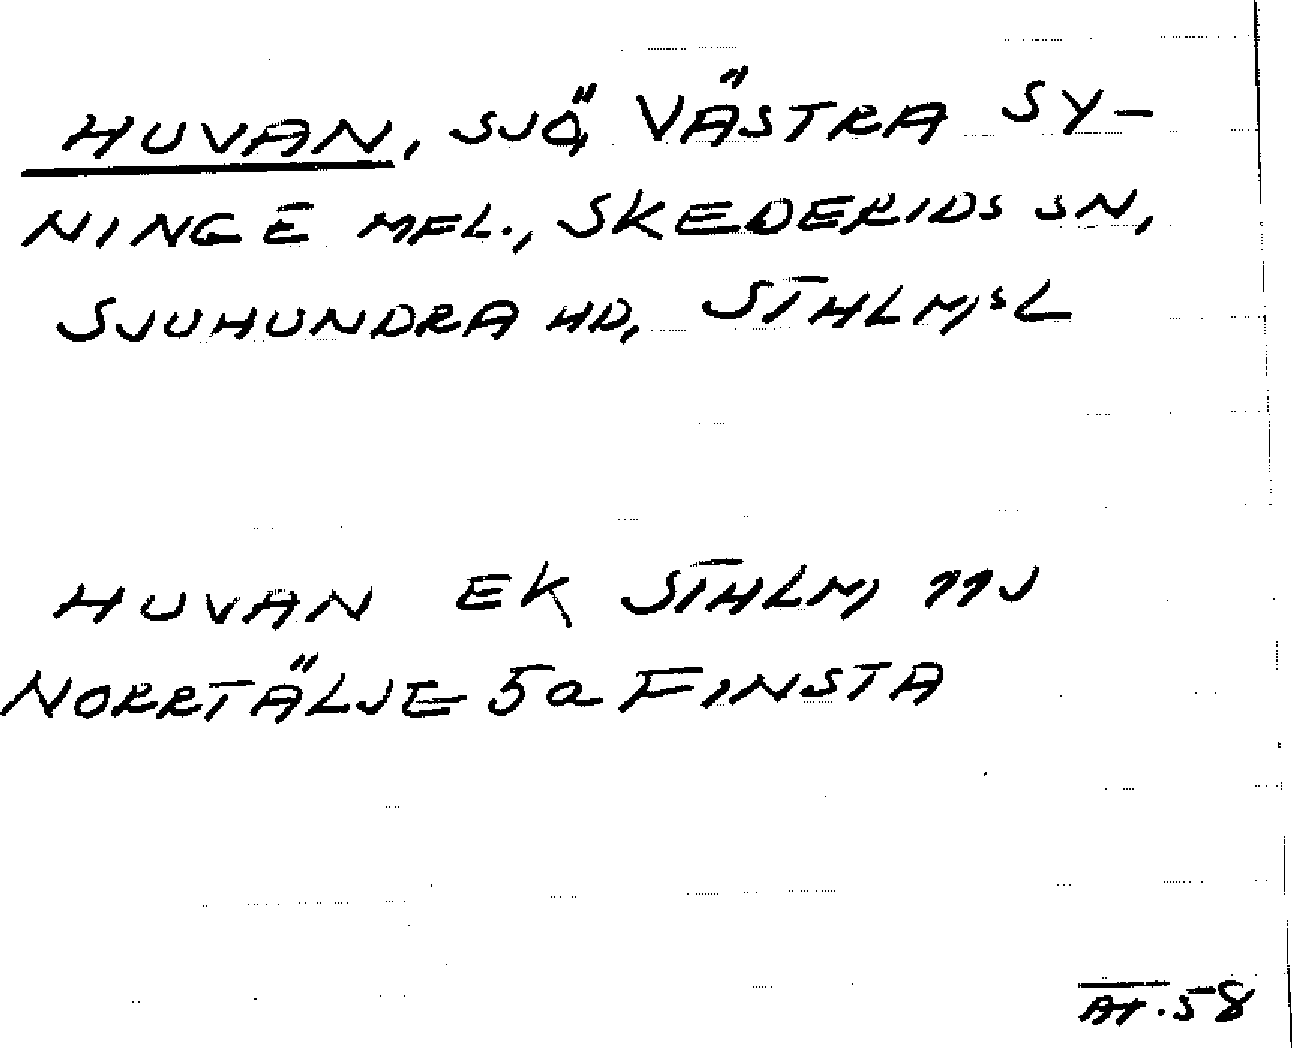 HUVAN, SJÖ, VÄSTRA SY-
NINGE MFL., SKEDERIDS SN,
SJUHUNDRA HD, STHLM,S L
HUVAN EK STHLM 11J
NORRTÄLJE 5a FINSTA
AT.58